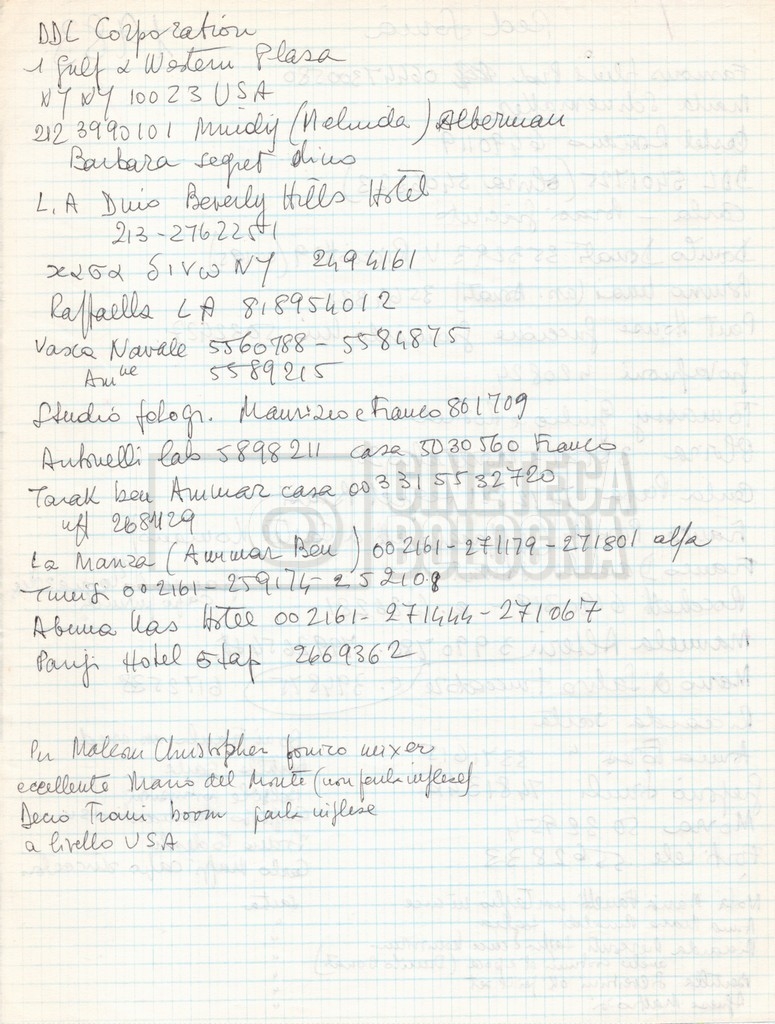 DDL Corporation
1 Gulf & Western Plasa
NY NY 10023 USA
212 3990101 (Melinda) Alberman
Barbara segret dino
L.A Dino Beverly Hills Hotel
213-2762251
χασα δινω NY 2494161
Raffaella LA 818954012
Vasca Navale 5560788 - 5584875
Amne 5589215
Studio fotogr. Maurizio e Franco 861709
Antonelli lab 5898211 casa 5030560 Franco
Tarak ben Ammar casa 0033 1 5532720
uff 2681129
La Manza (Ammar Ben) 002161-271179-271801 alfa
Tunisi 002161-259174-252108
Abuna Nas Hotel 002161-271444-271067
Parigi Hotel Etap 2669362
Per Malcom Christopher fonico mixer
eccellente Mario del Monte (non parla inglese)
Decio Trani boom parla inglese
a livello USA
CINETECA
BOLOGNA